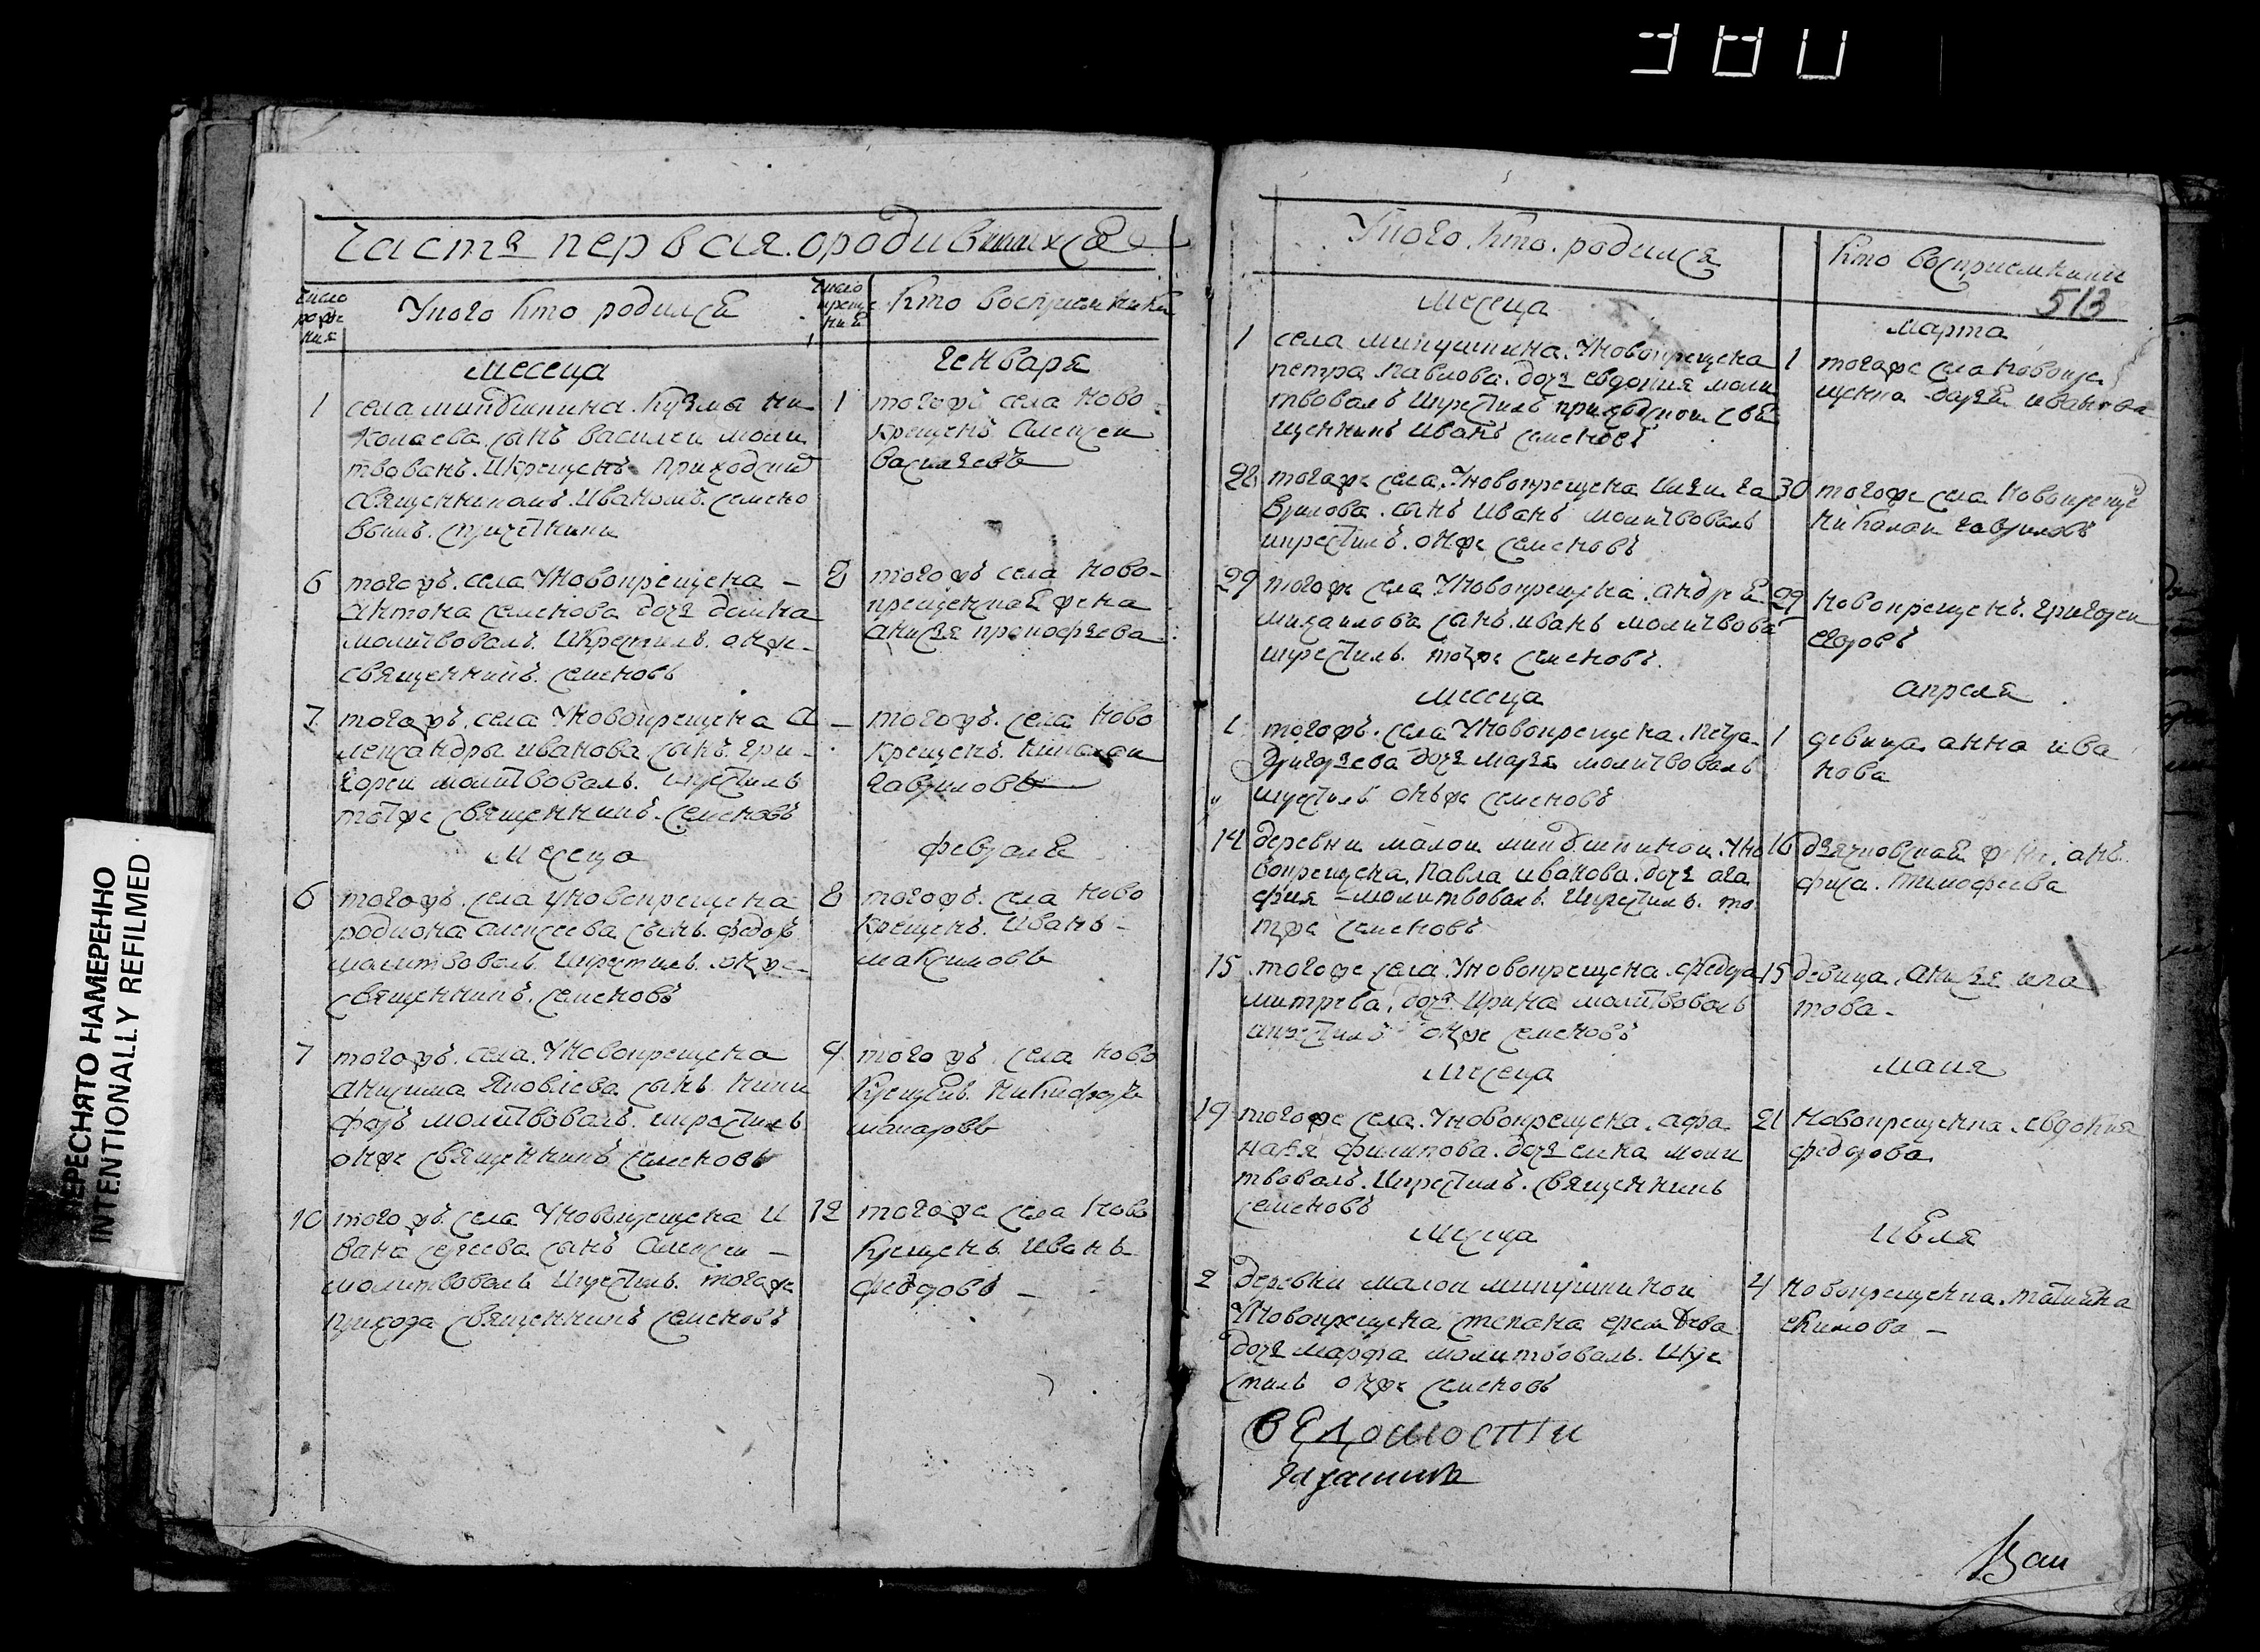 380
часть первая о родившихся
число рожде ния
У кого кто родился
число креще ния
кто восприемники
месеца
генваря
1
села миндюшкина кузма ни
колаева сынъ василеи моли
твованъ и крещенъ приходским
священникомъ иваномъ семено
вымъ с причетники
1
тогожъ села ново
крещенъ алексеи
василевъ
6
тогожъ села у новокрещена
антона семенова дочь домна
молитвовалъ и крестилъ онже
священникъ семеновъ
8
тогожъ села ново
крещенская жена
анисья прокофьева
7
тогожъ села у новокрещена а
лександры иванова сынъ гри
гореи молитвовалъ и крестилъ
тотже священникъ семеновъ
тогожъ села ново
крещенъ николаи
гавриловъ
месеца
февраля
6
тогожъ села у новокрещена
родиона алексеева сынъ федоръ
молитвовалъ и крестилъ онже
священникъ семеновъ
8
тогожъ села ново
крещенъ иванъ
максимовъ
7
тогожъ села у новокрещена
анисима яковлева сынъ ники
форъ молитвовалъ и крестилъ
онже священникъ семеновъ
9
тогожъ села ново
крещенъ никифоръ
макаровъ
10
тогожъ села у новокрещена и
вана сергеева сынъ алексеи
молитвовалъ и крестилъ тогоже
прихода священникъ семеновъ
12
тогоже села ново
крещенъ иванъ
федоровъ
У кого кто родился
кто восприемники
513
месеца
марта
1
села минушкина у новокрещена
петра павлова дочь евдокия моли
твовалъ и крестилъ приходскои свя
щенникъ иванъ семеновъ
1
тогоже села новокре
щенка дарья иванова
28
тогоже села у новокрещена ильи га
врилова сынъ иванъ молитвовалъ
и крестилъ онже семеновъ
30
тогоже села новокреще
николаи гавриловъ
29
тогоже села у новокрещена андрея
михаилова сынъ иванъ молитвова
и крестилъ тотже семеновъ
29
новокрещенъ григореи
егоровъ
месеца
апреля
1
тогожъ села у новокрещена петра
григорьева дочь марья молитвовалъ
и крестилъ онъже семеновъ
1
девица анна ива
нова
14
деревни малои миндюшкинои у но
вокрещена павла иванова дочь ага
фия молитвовалъ и крестилъ то
тже семеновъ
16
дьячковская жена анъ
фиса тимофеева
15
тогоже села у новокрещена федора
митрева дочь ирина молитвовалъ
и крестилъ онже семеновъ
15
девица анисья ипа
това
месеца
маия
19
тогоже села у новокрещена афа
насья филипова дочь елена моли
твовалъ и крестилъ священникъ
семеновъ
21
новокрещенка евдокия
федорова
месеца
июля
2
деревни малои минушкинои
у новокрещена степана еремеева
дочь марфа молитвовалъ и кре
стилъ онже семеновъ
4
новокрещенка татьяна
екимова
ведомости
ПЕРЕСНЯТО НАМЕРЕННО
INTENTIONALLY REFILMED